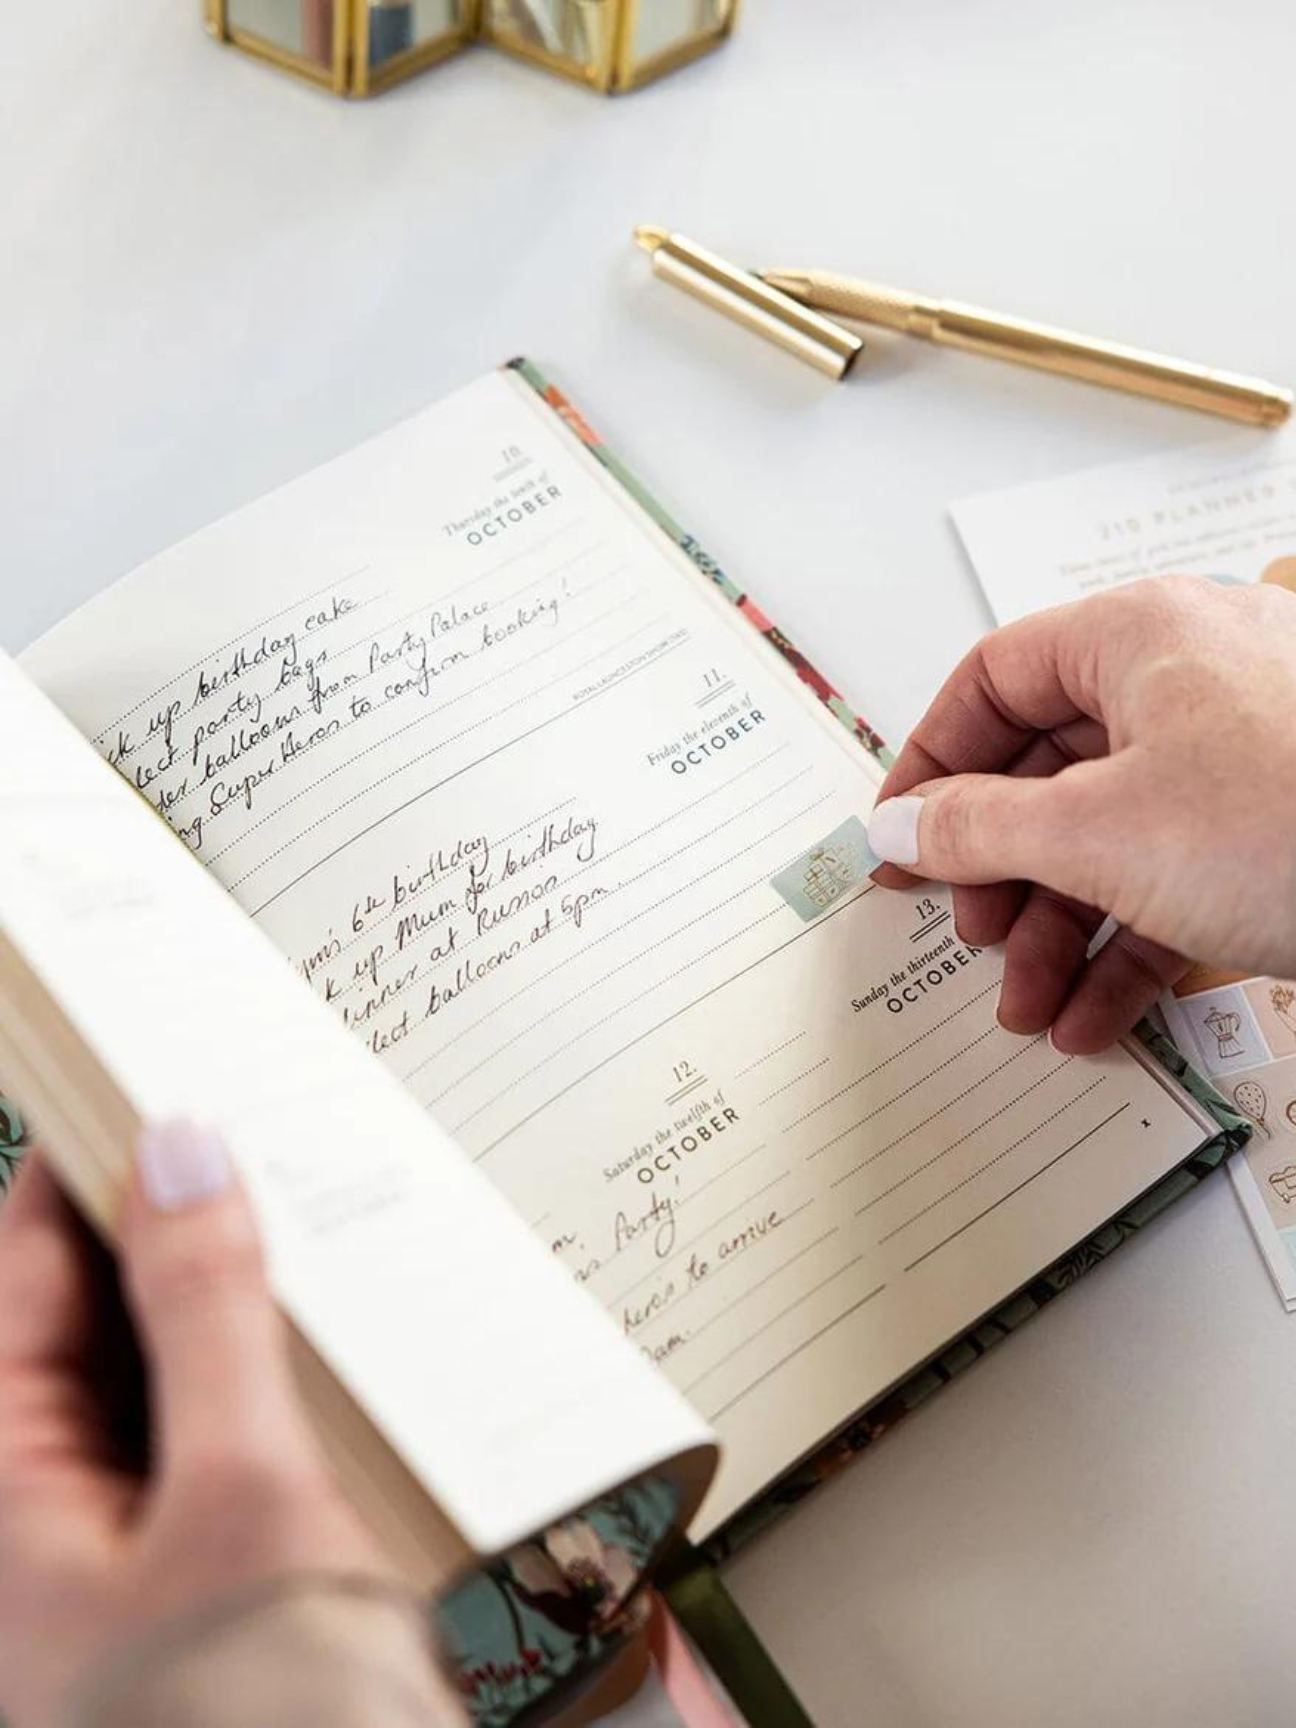 10.
Thursday the tenth of
OCTOBER
ck up birthday cake
lect party bags
der balloons from Party Palace
ng Super Heros to confirm booking!
ROYAL LAUNCESTON SHOW (TAS)
11.
Friday the eleventh of
OCTOBER
ym's 6th birthday
k up Mum for birthday
dinner at
lect balloons at 5pm
12.
Saturday the twelfth of
OCTOBER
m,
Party!
heros to arrive
am.
13.
Sunday the thirteenth
OCTOBER
210 PLANNER